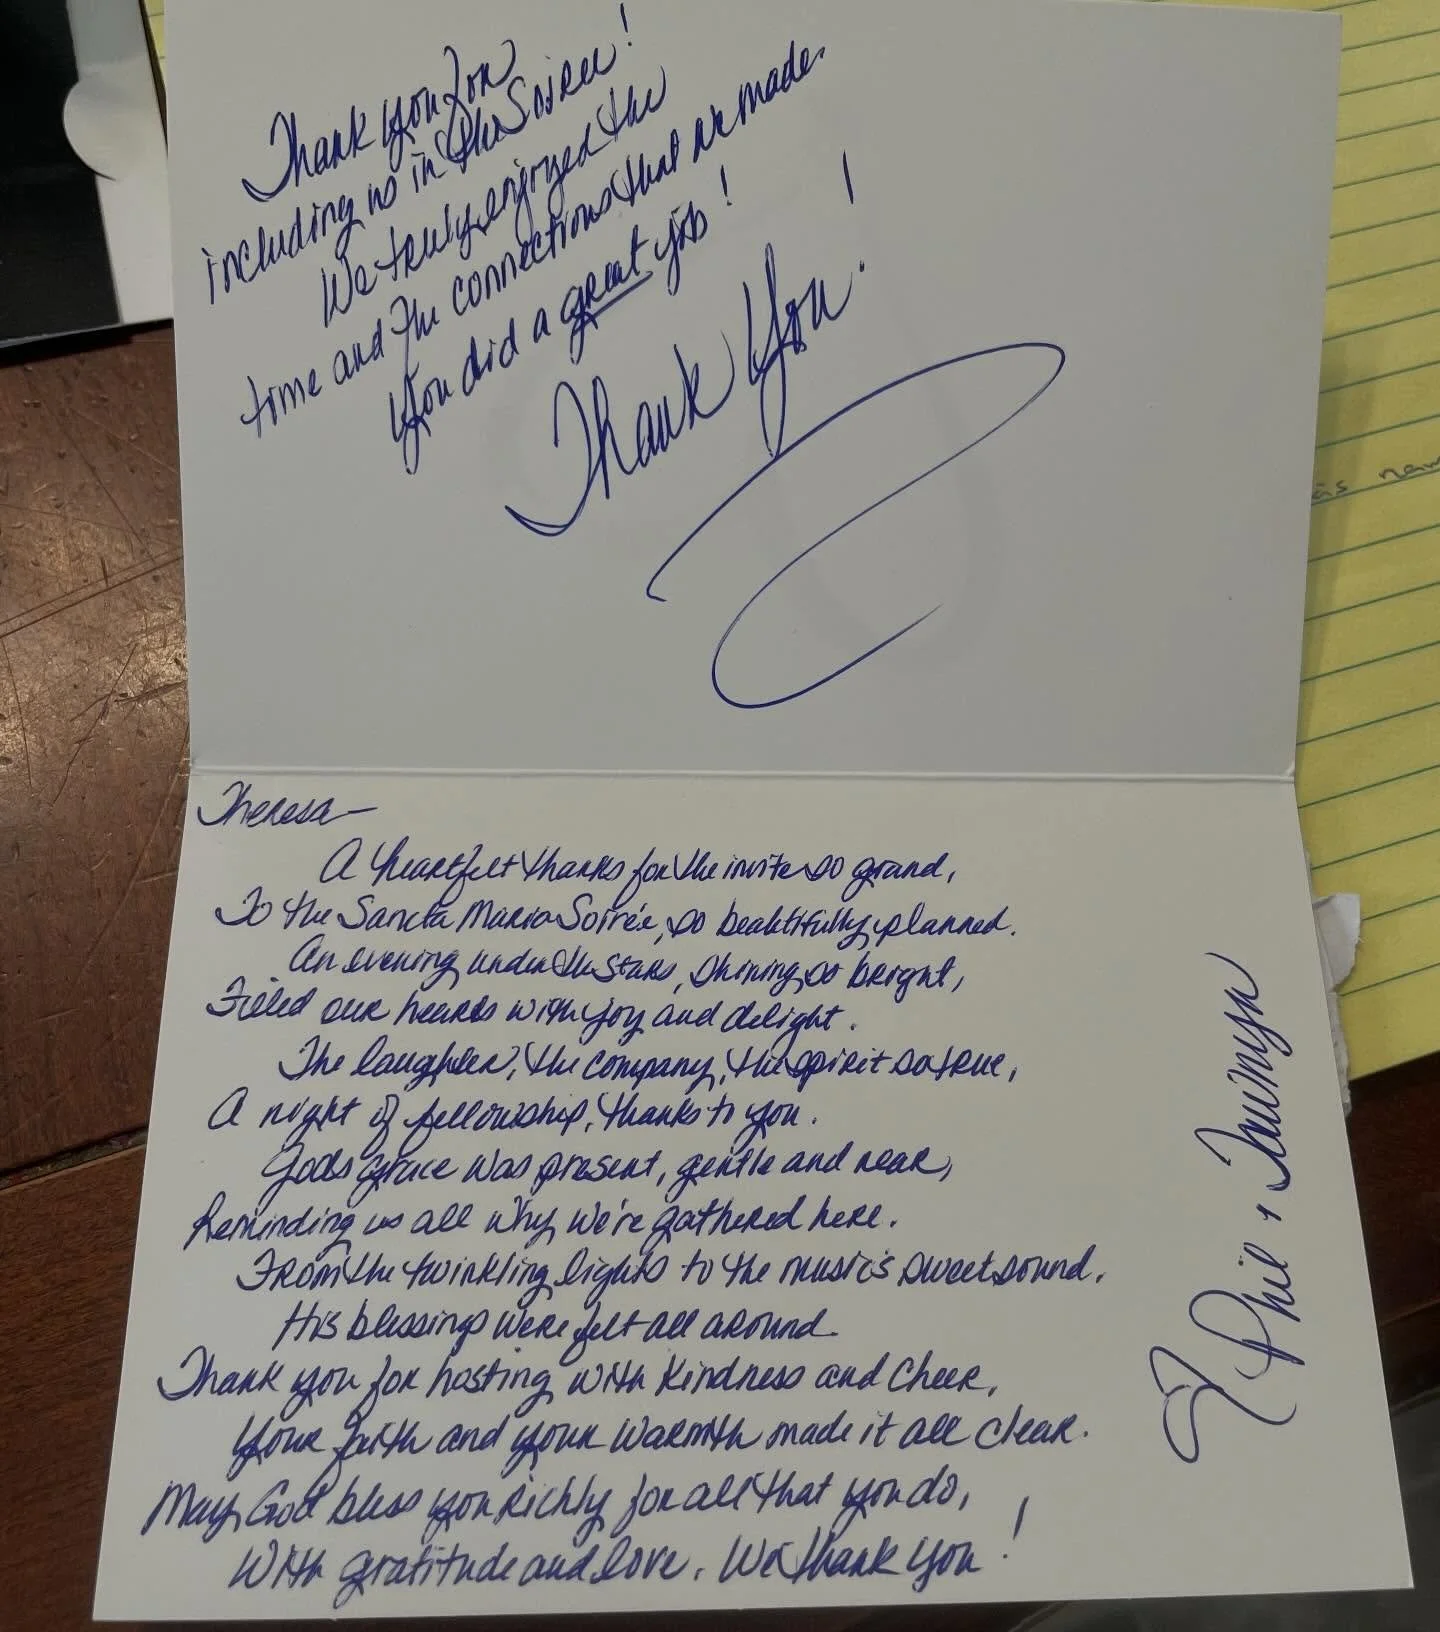 Thank you for
including us in the Soiree!
We truly enjoyed the
time and the connections that we made.
You did a great job!
Thank You!
Theresa—
A heartfelt thanks for the invite so grand,
To the Sancta Maria Soirée, so beautifully planned.
An evening under the stars, shining so bright,
Filled our hearts with joy and delight.
The laughter, the company, the spirit so true,
A night of fellowship, thanks to you.
Gods grace was present, gentle and near,
Reminding us all why we're gathered here.
From the twinkling lights to the music's sweet sound.
His blessings were felt all around.
Thank you for hosting with kindness and cheer,
Your faith and your warmth made it all clear.
May God bless you richly for all that you do,
With gratitude and love, We thank you!
Phil + Tawnya
as nam